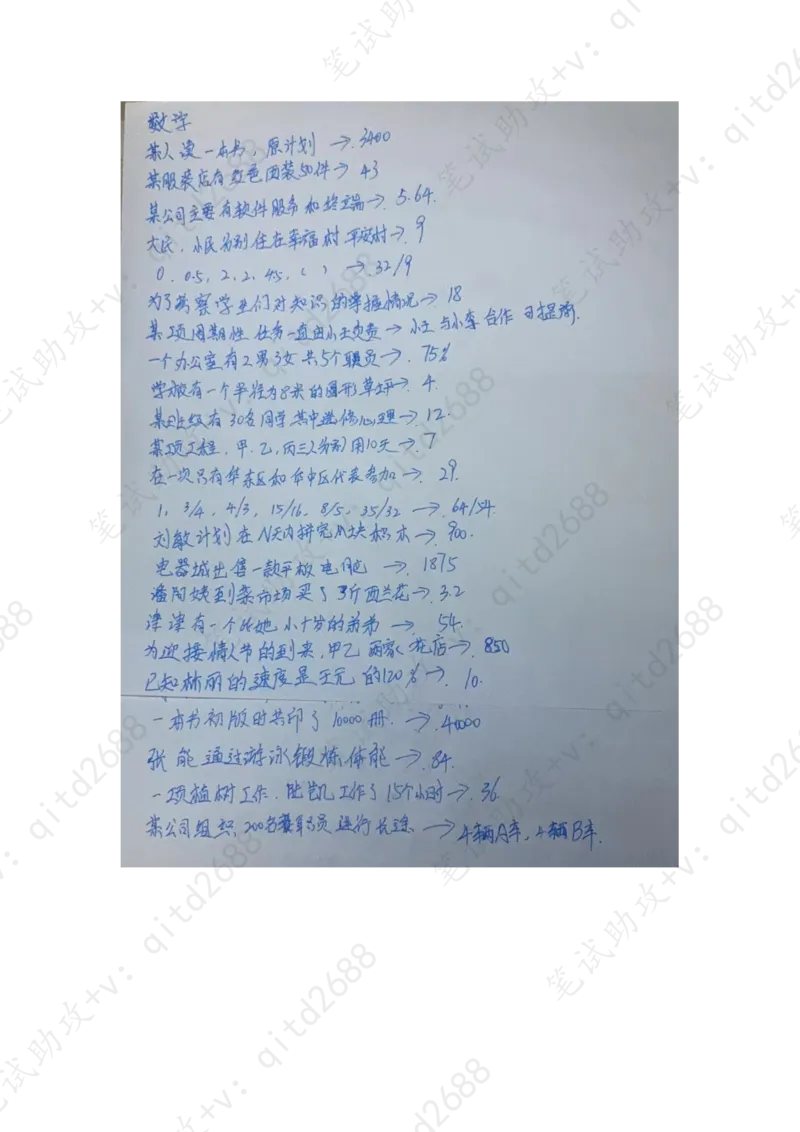 数字
某人读一本书，原计划 → 3400
某服装店有双色西装50件 → 43
某公司主要有软件服务和终端 → 5.64.
大民、小民分别住在幸福村平安村 → 9
0. 0.5, 2, 2, 4.5, ( ) → 32/9
为了考察学生们对知识的掌握情况 → 18
某项周期性任务一直由小王负责 → 小王与小李合作
一个办公室有2男3女共5个职员 → 75%
学校有一个半径为8米的圆形草坪 → 4.
某班级有30名同学其中选修心理 → 12.
某项工程，甲、乙、丙三人分别用10天 → 7
在一次只有华东区和华中区代表参加 → 29.
1, 3/4, 4/3, 15/16, 8/5, 35/32 → 64/54.
刘敏计划在N天内拼完 块积木 → 900.
电器城出售一款平板电脑 → 1875
潘阿姨到菜市场买了3斤西兰花 → 3.2
津津有一个比她小十岁的弟弟 → 54.
为迎接情人节的到来，甲乙两家花店 → 850
已知林丽的速度是王元的120% → 10.
一本书初版时共印了10000册. → 40000
张能通过游泳锻炼体能 → 84.
一项植树工作，陆凯工作了15个小时 → 36
某公司组织200名 员进行长途 → 4辆A车，4辆B车.
笔试助攻+v：qitd2688